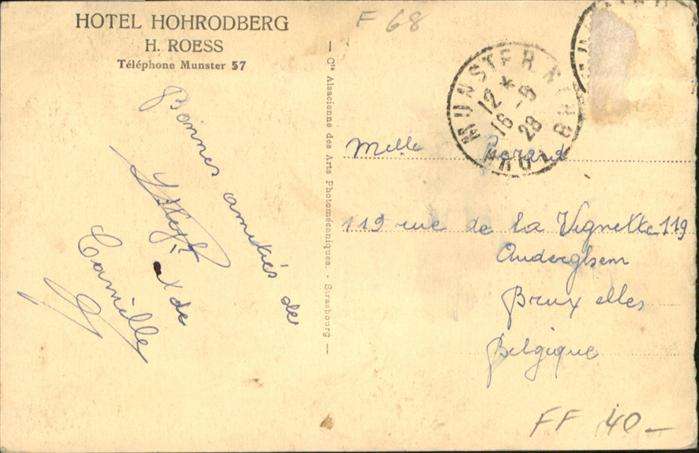 HOTEL HOHRODBERG
H. ROESS
Téléphone Munster 57
F 68
Bonnes amitiés de
et de
Camille
— Cie Alsacienne des Arts Photomécaniques. - Strasbourg —
MUNSTER
12 *
16 -5
28
Melle
119 rue de la Vignette 119
Auderghem
Bruxelles
Belgique
FF 40 —